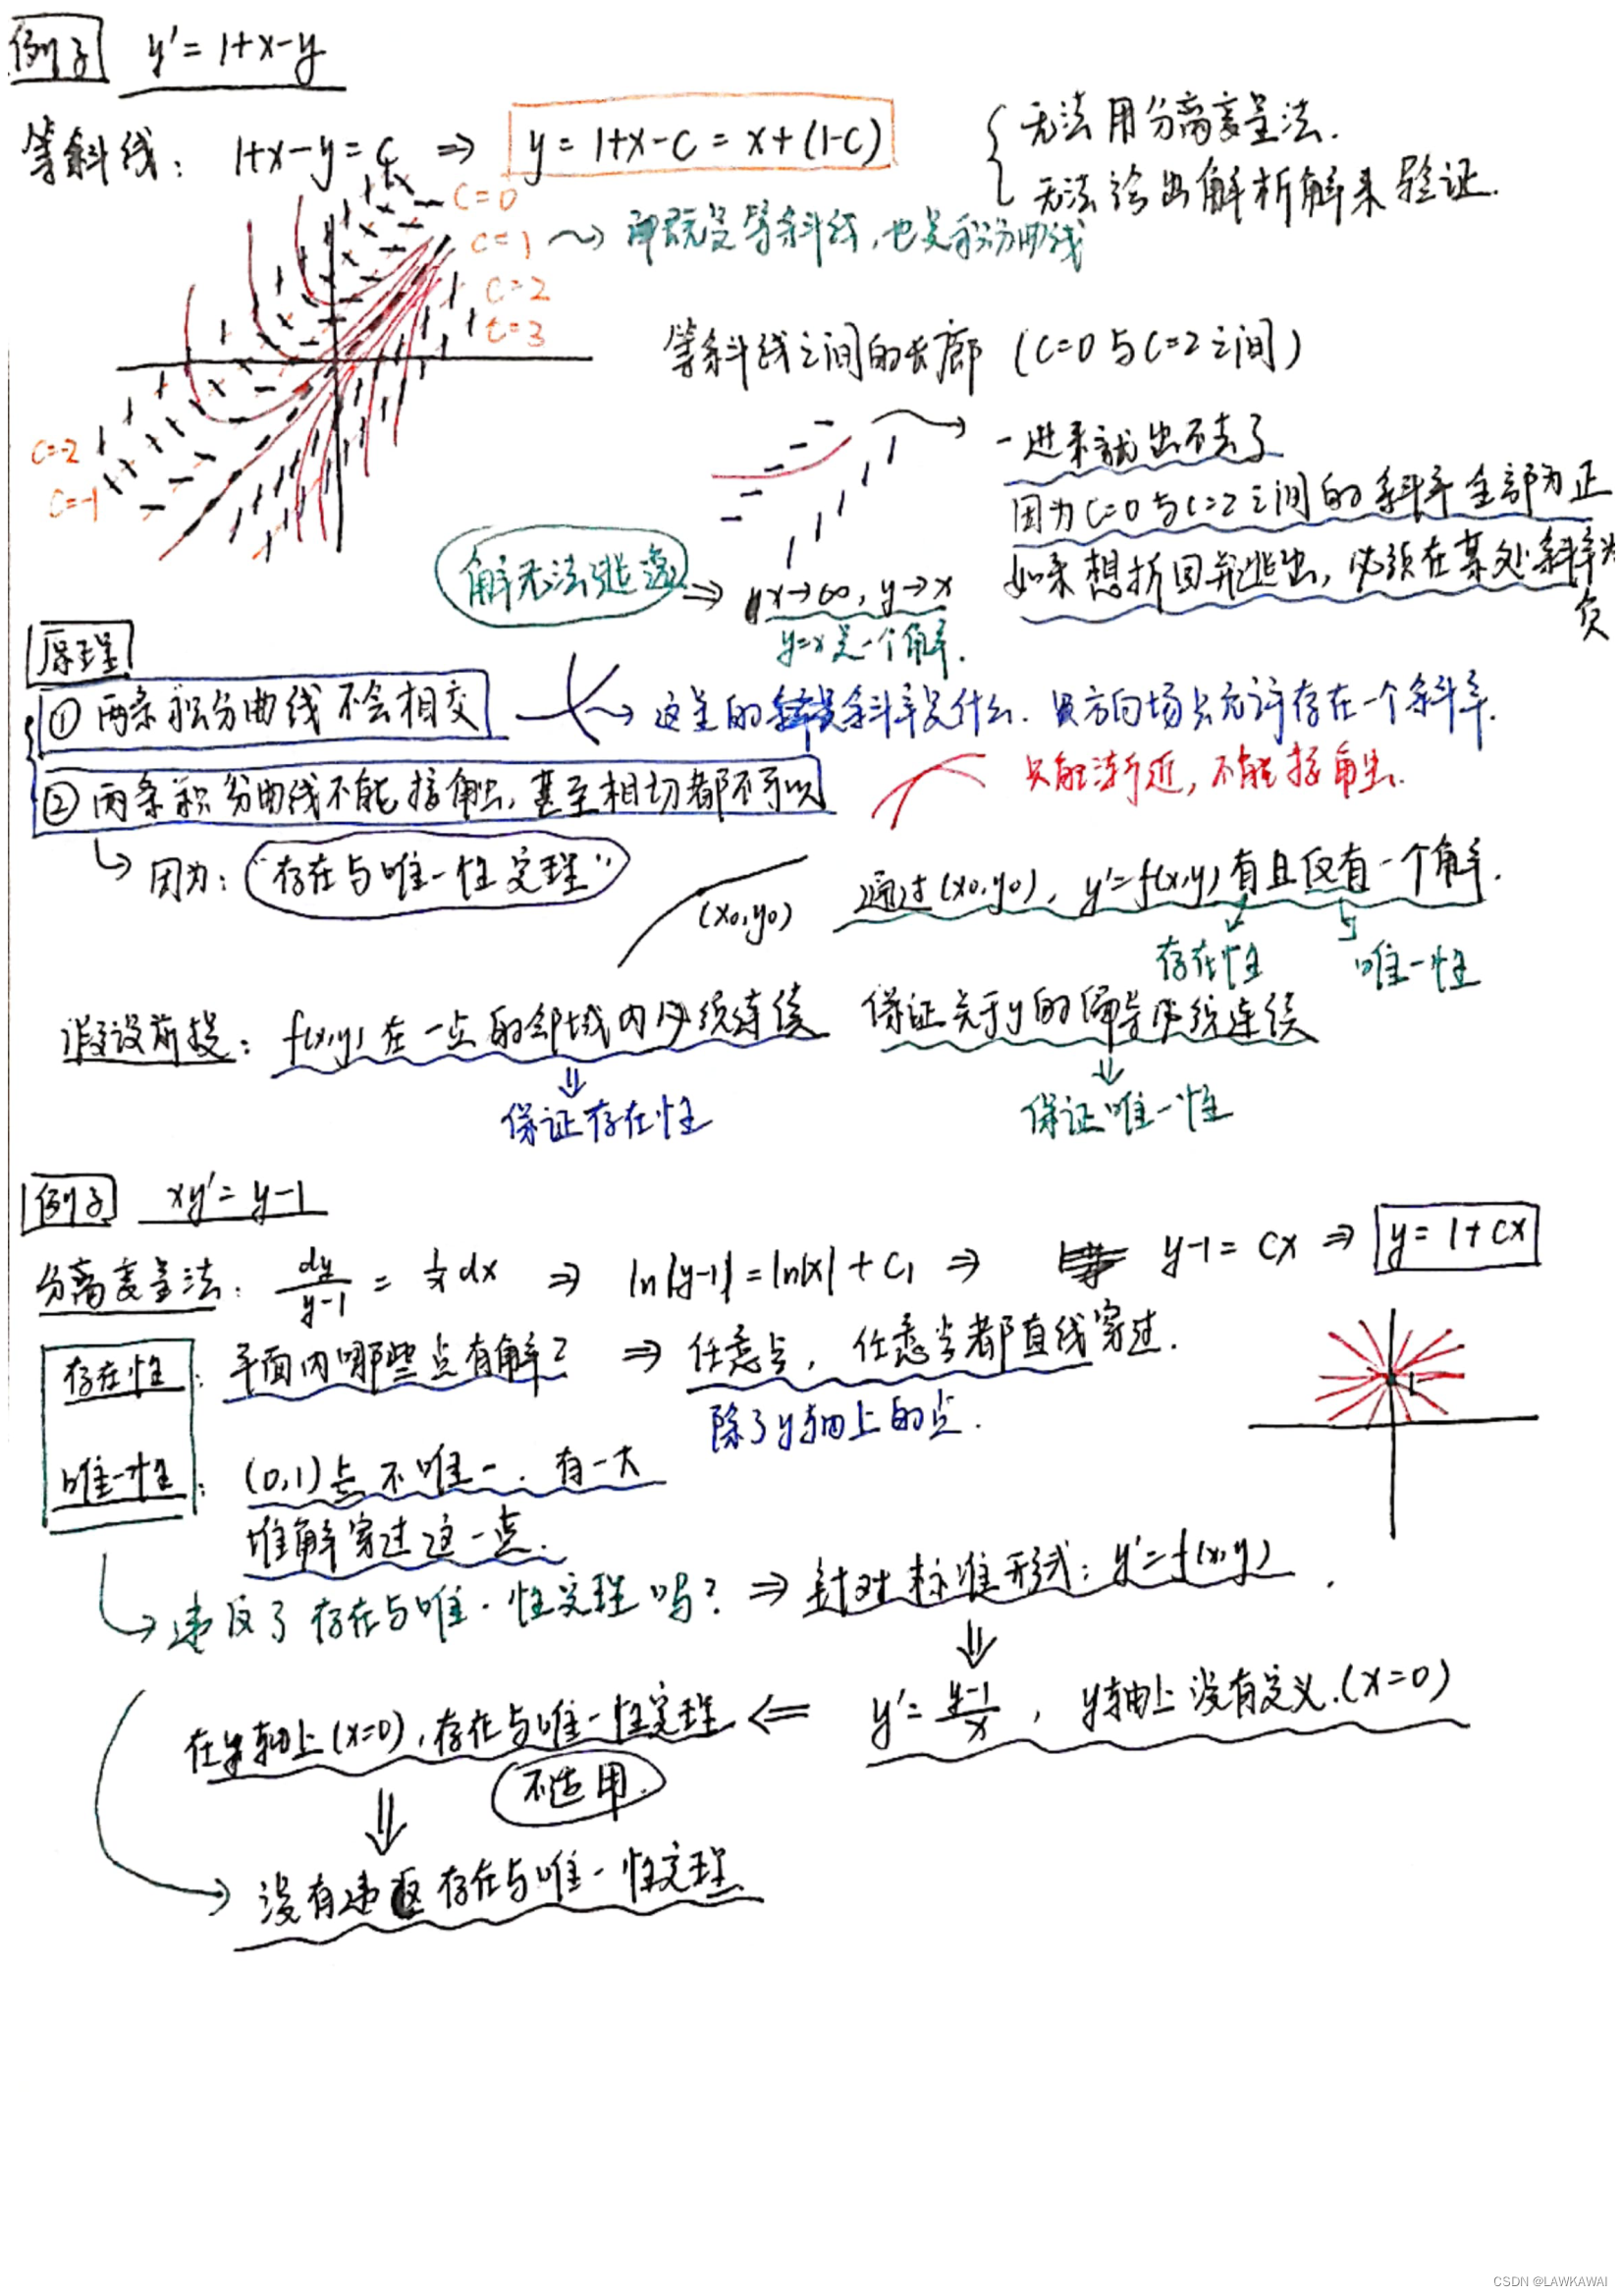 例子 y' = 1+x-y
等斜线: 1+x-y=C ⇒ y = 1+x-C = x+(1-C)
无法用分离变量法.
无法给出解析解来验证.
C=0
C=1 即既是等斜线,也是积分曲线
C=2
C=3
C=-2
C=-1
等斜线之间的长廊 (C=0 与 C=2 之间)
一进来就出不去了
因为 C=0 与 C=2 之间的斜率全部为正
如果想折回并逃出,必须在某处斜率为
负
解无法逃逸 ⇒ x→∞, y→x
y=x是一个解.
原理
① 两条积分曲线不会相交
这里的斜率是什么. 方向场只允许存在一个斜率.
② 两条积分曲线不能接触,甚至相切都不可以
只能渐近,不能接触.
因为: "存在与唯一性定理"
(x0,y0)
通过(x0,y0), y'=f(x,y) 有且仅有一个解.
存在性 唯一性
假设前提: f(x,y) 在一点的邻域内必须连续 保证关于y的偏导必须连续
⇓ 保证存在性
⇓ 保证唯一性
例子 xy' = y-1
分离变量法: dy/(y-1) = 1/x dx ⇒ ln|y-1| = ln|x| + C1 ⇒ y-1 = Cx ⇒ y = 1+Cx
存在性: 平面内哪些点有解? ⇒ 任意点, 任意点都直线穿过.
除了y轴上的点.
1
唯一性: (0,1)点不唯一. 有一大
堆解穿过这一点.
违反了存在与唯一性定理吗? ⇒ 针对标准形式: y'=f(x,y).
⇓
在y轴上(x=0), 存在与唯一性定理 ⇐ y' = (y-1)/x, y轴上没有定义.(x=0)
不适用.
⇓
没有违反存在与唯一性定理.
CSDN @LAWKAWAI